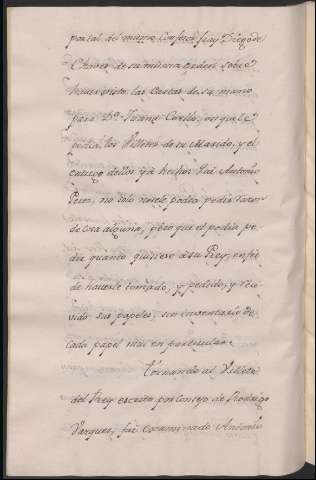 postal del mismo Confesor fray Diego de
Chaves de su misma orden, sobre
haver visto las Cartas de su mano
para D.ª Juana Coello, en que le
pedia los Villetes de su Marido, y el
entrego dellos ya hecho: Que Antonio
Perez, no solo no se le podia pedir razon
de cosa alguna, pero que el podia pe-
dir quanto quisiese a su Rey, en fee
de haverle tomado, y pedido, y reci-
vido sus papeles, sin inventario de
cada papel mas en particular.
Tornando al Villete
del Rey escrito por Consejo de Rodrigo
Vazquez, fue examinado Antonio